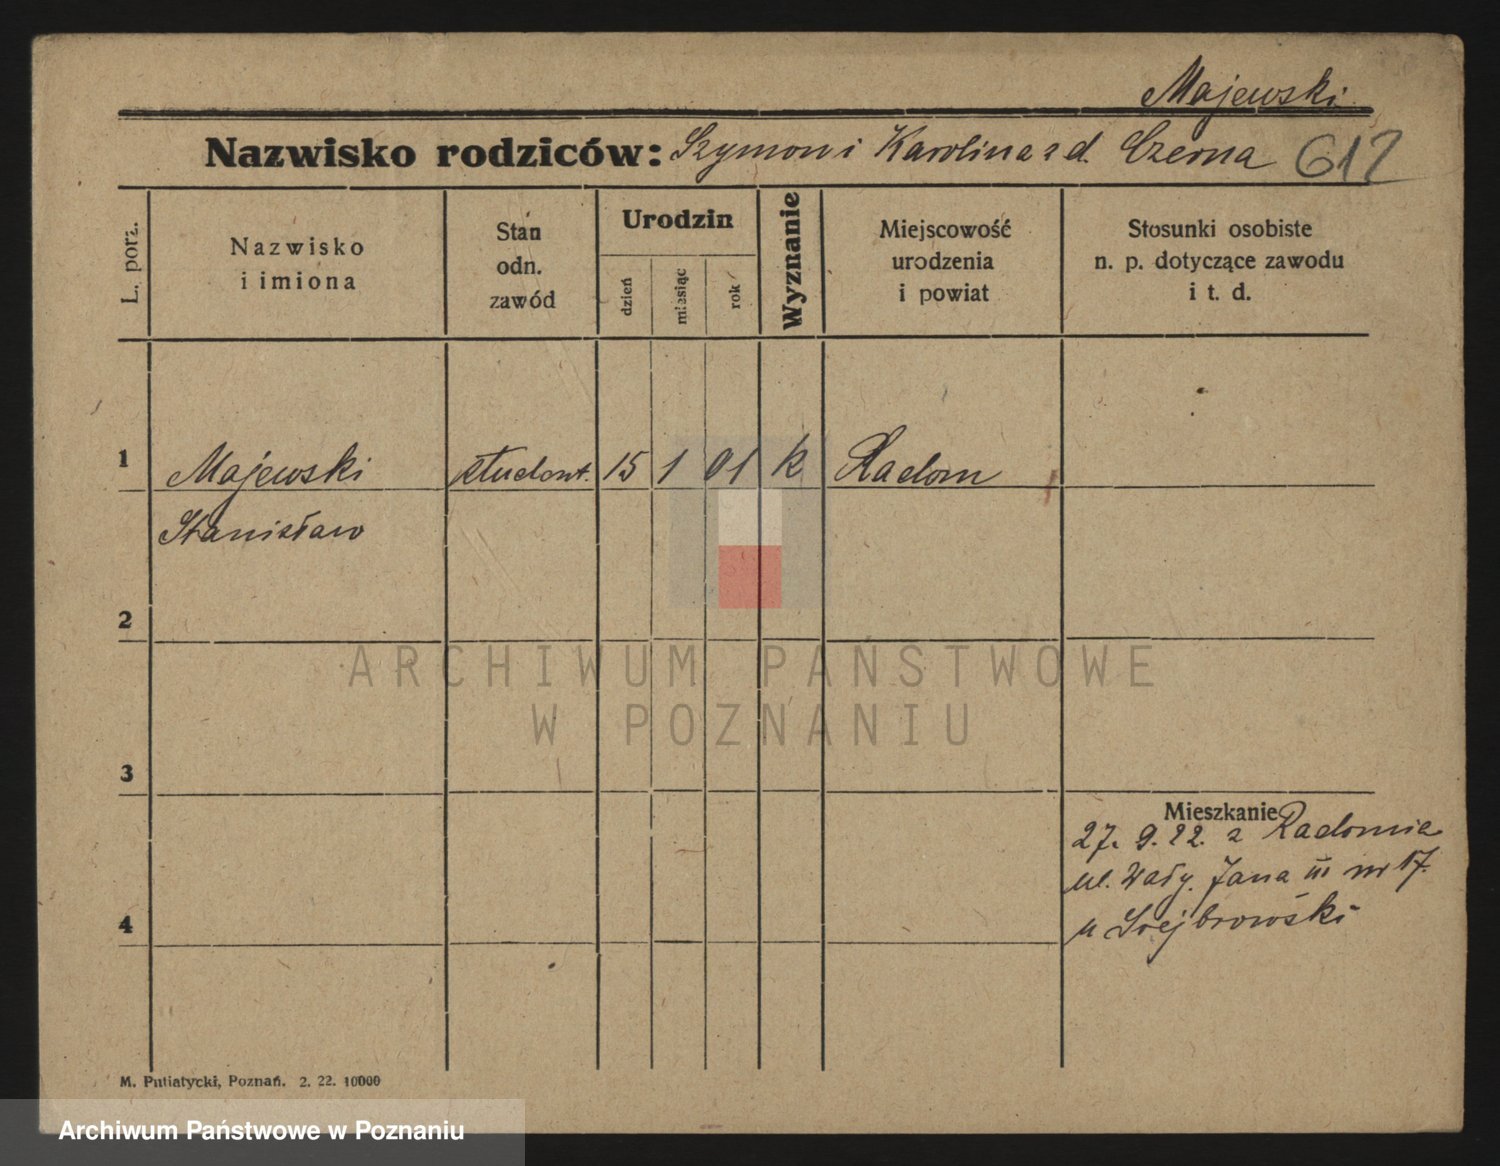 Majewski
Nazwisko rodziców: Szymon i Karolina z d. Czerna 617
L. porz.
Nazwisko
i imiona
Stan
odn.
zawód
Urodzin
dzień
miesiąc
rok
Wyznanie
Miejscowość
urodzenia
i powiat
Stosunki osobiste
n. p. dotyczące zawodu
i t. d.
1 Majewski student. 15 1 01 k Radom
Stanisław
2
ARCHIWUM PAŃSTWOWE
W POZNANIU
3
Mieszkanie
27. 9. 22. z Radomia
ul. Wały. Jana III nr 17.
4
u
M. Putiatycki, Poznań. 2. 22. 10000
Archiwum Państwowe w Poznaniu